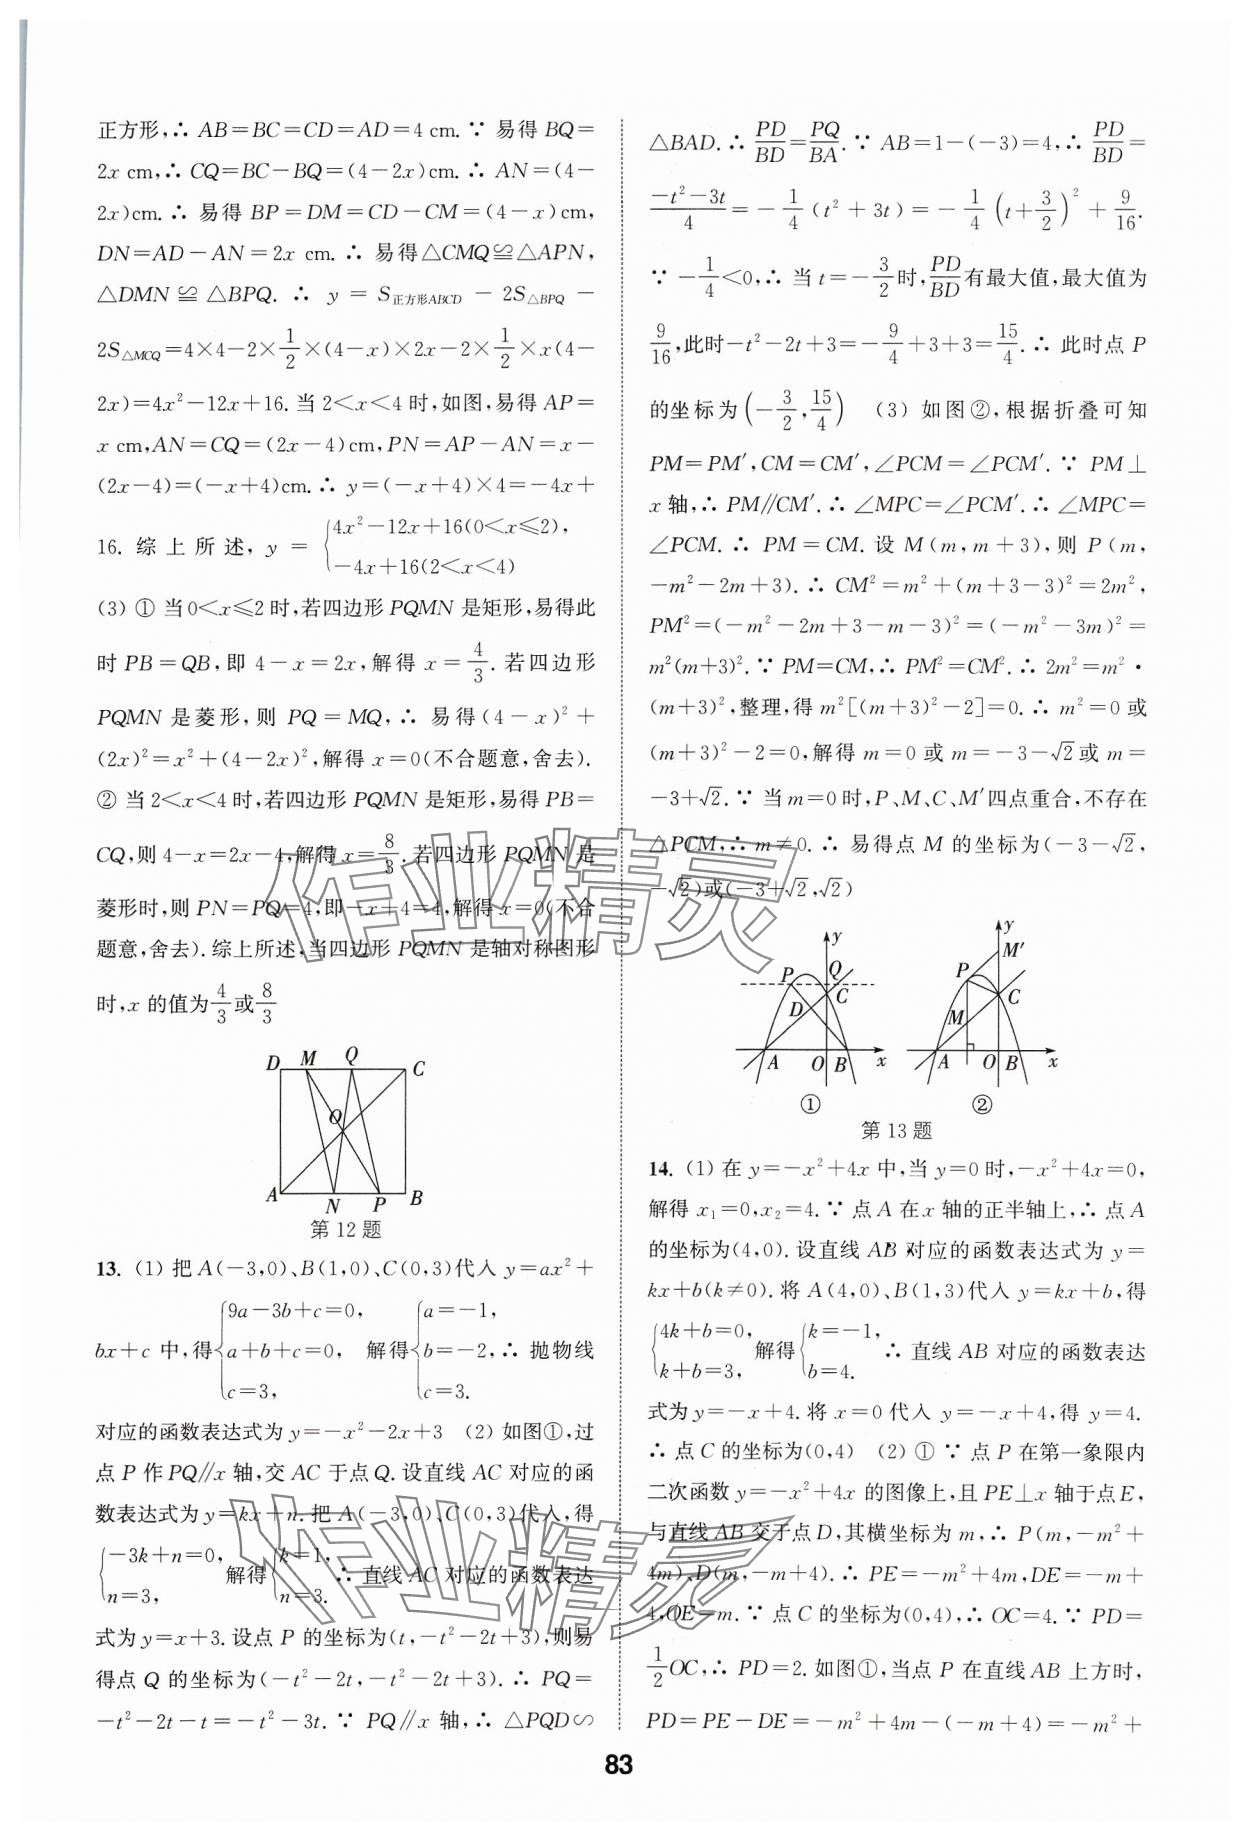 正方形,∴ AB=BC=CD=AD=4 cm.∵ 易得BQ=
2x cm,∴ CQ=BC-BQ=(4-2x)cm.∴ AN=(4-
2x)cm.∴ 易得 BP=DM=CD-CM=(4-x)cm,
DN=AD-AN=2x cm.∴ 易得△CMQ≌△APN,
△DMN≌△BPQ.∴ y=S正方形ABCD-2S△BPQ-
2S△MCQ=4×4-2×1/2×(4-x)×2x-2×1/2×x(4-
2x)=4x²-12x+16.当2<x<4时,如图,易得AP=
x cm,AN=CQ=(2x-4)cm,PN=AP-AN=x-
(2x-4)=(-x+4)cm.∴ y=(-x+4)×4=-4x+
16. 综上所述, y={4x²-12x+16(0<x≤2),
-4x+16(2<x<4)
(3) ① 当0<x≤2时,若四边形PQMN是矩形,易得此
时PB=QB,即4-x=2x,解得x=4/3.若四边形
PQMN是菱形,则PQ=MQ,∴ 易得(4-x)²+
(2x)²=x²+(4-2x)²,解得x=0(不合题意,舍去).
② 当2<x<4时,若四边形PQMN是矩形,易得PB=
CQ,则4-x=2x-4,解得x=8/3.若四边形PQMN是
菱形时,则PN=PQ=4,即-x+4=4,解得x=0(不合
题意,舍去).综上所述,当四边形PQMN是轴对称图形
时,x的值为4/3或8/3
D M Q C
O
A N P B
第12题
13. (1) 把A(-3,0)、B(1,0)、C(0,3)代入y=ax²+
bx+c中,得{9a-3b+c=0, a+b+c=0, c=3, 解得{a=-1, b=-2, c=3. ∴ 抛物线
对应的函数表达式为y=-x²-2x+3 (2) 如图①,过
点P作PQ∥x轴,交AC于点Q.设直线AC对应的函
数表达式为y=kx+n.把A(-3,0)、C(0,3)代入,得
{-3k+n=0, n=3, 解得{k=1, n=3. ∴ 直线AC对应的函数表达
式为y=x+3.设点P的坐标为(t,-t²-2t+3),则易
得点Q的坐标为(-t²-2t,-t²-2t+3).∴ PQ=
-t²-2t-t=-t²-3t.∵ PQ∥x轴,∴ △PQD∽
△BAD.∴ PD/BD=PQ/BA.∵ AB=1-(-3)=4,∴ PD/BD=
(-t²-3t)/4=-1/4(t²+3t)=-1/4(t+3/2)²+9/16.
∵ -1/4<0,∴ 当t=-3/2时,PD/BD有最大值,最大值为
9/16,此时-t²-2t+3=-9/4+3+3=15/4.∴ 此时点P
的坐标为(-3/2,15/4) (3) 如图②,根据折叠可知
PM=PM′,CM=CM′,∠PCM=∠PCM′.∵ PM⊥
x轴,∴ PM∥CM′.∴ ∠MPC=∠PCM′.∴ ∠MPC=
∠PCM.∴ PM=CM.设M(m,m+3),则P(m,
-m²-2m+3).∴ CM²=m²+(m+3-3)²=2m²,
PM²=(-m²-2m+3-m-3)²=(-m²-3m)²=
m²(m+3)².∵ PM=CM,∴ PM²=CM².∴ 2m²=m²·
(m+3)²,整理,得m²[(m+3)²-2]=0.∴ m²=0或
(m+3)²-2=0,解得m=0或m=-3-√2或m=
-3+√2.∵ 当m=0时,P、M、C、M′四点重合,不存在
△PCM,∴ m≠0.∴ 易得点M的坐标为(-3-√2,
-√2)或(-3+√2,√2)
y P Q C D A O B x
①
y M′ P C M A O B x
②
第13题
14. (1) 在y=-x²+4x中,当y=0时,-x²+4x=0,
解得x₁=0,x₂=4.∵ 点A在x轴的正半轴上,∴ 点A
的坐标为(4,0).设直线AB对应的函数表达式为y=
kx+b(k≠0).将A(4,0)、B(1,3)代入y=kx+b,得
{4k+b=0, k+b=3, 解得{k=-1, b=4. ∴ 直线AB对应的函数表达
式为y=-x+4.将x=0代入y=-x+4,得y=4.
∴ 点C的坐标为(0,4) (2) ① ∵ 点P在第一象限内
二次函数y=-x²+4x的图像上,且PE⊥x轴于点E,
与直线AB交于点D,其横坐标为m,∴ P(m,-m²+
4m)、D(m,-m+4).∴ PE=-m²+4m,DE=-m+
4,OE=m.∵ 点C的坐标为(0,4),∴ OC=4.∵ PD=
1/2OC,∴ PD=2.如图①,当点P在直线AB上方时,
PD=PE-DE=-m²+4m-(-m+4)=-m²+
83
作业精灵
作业精灵